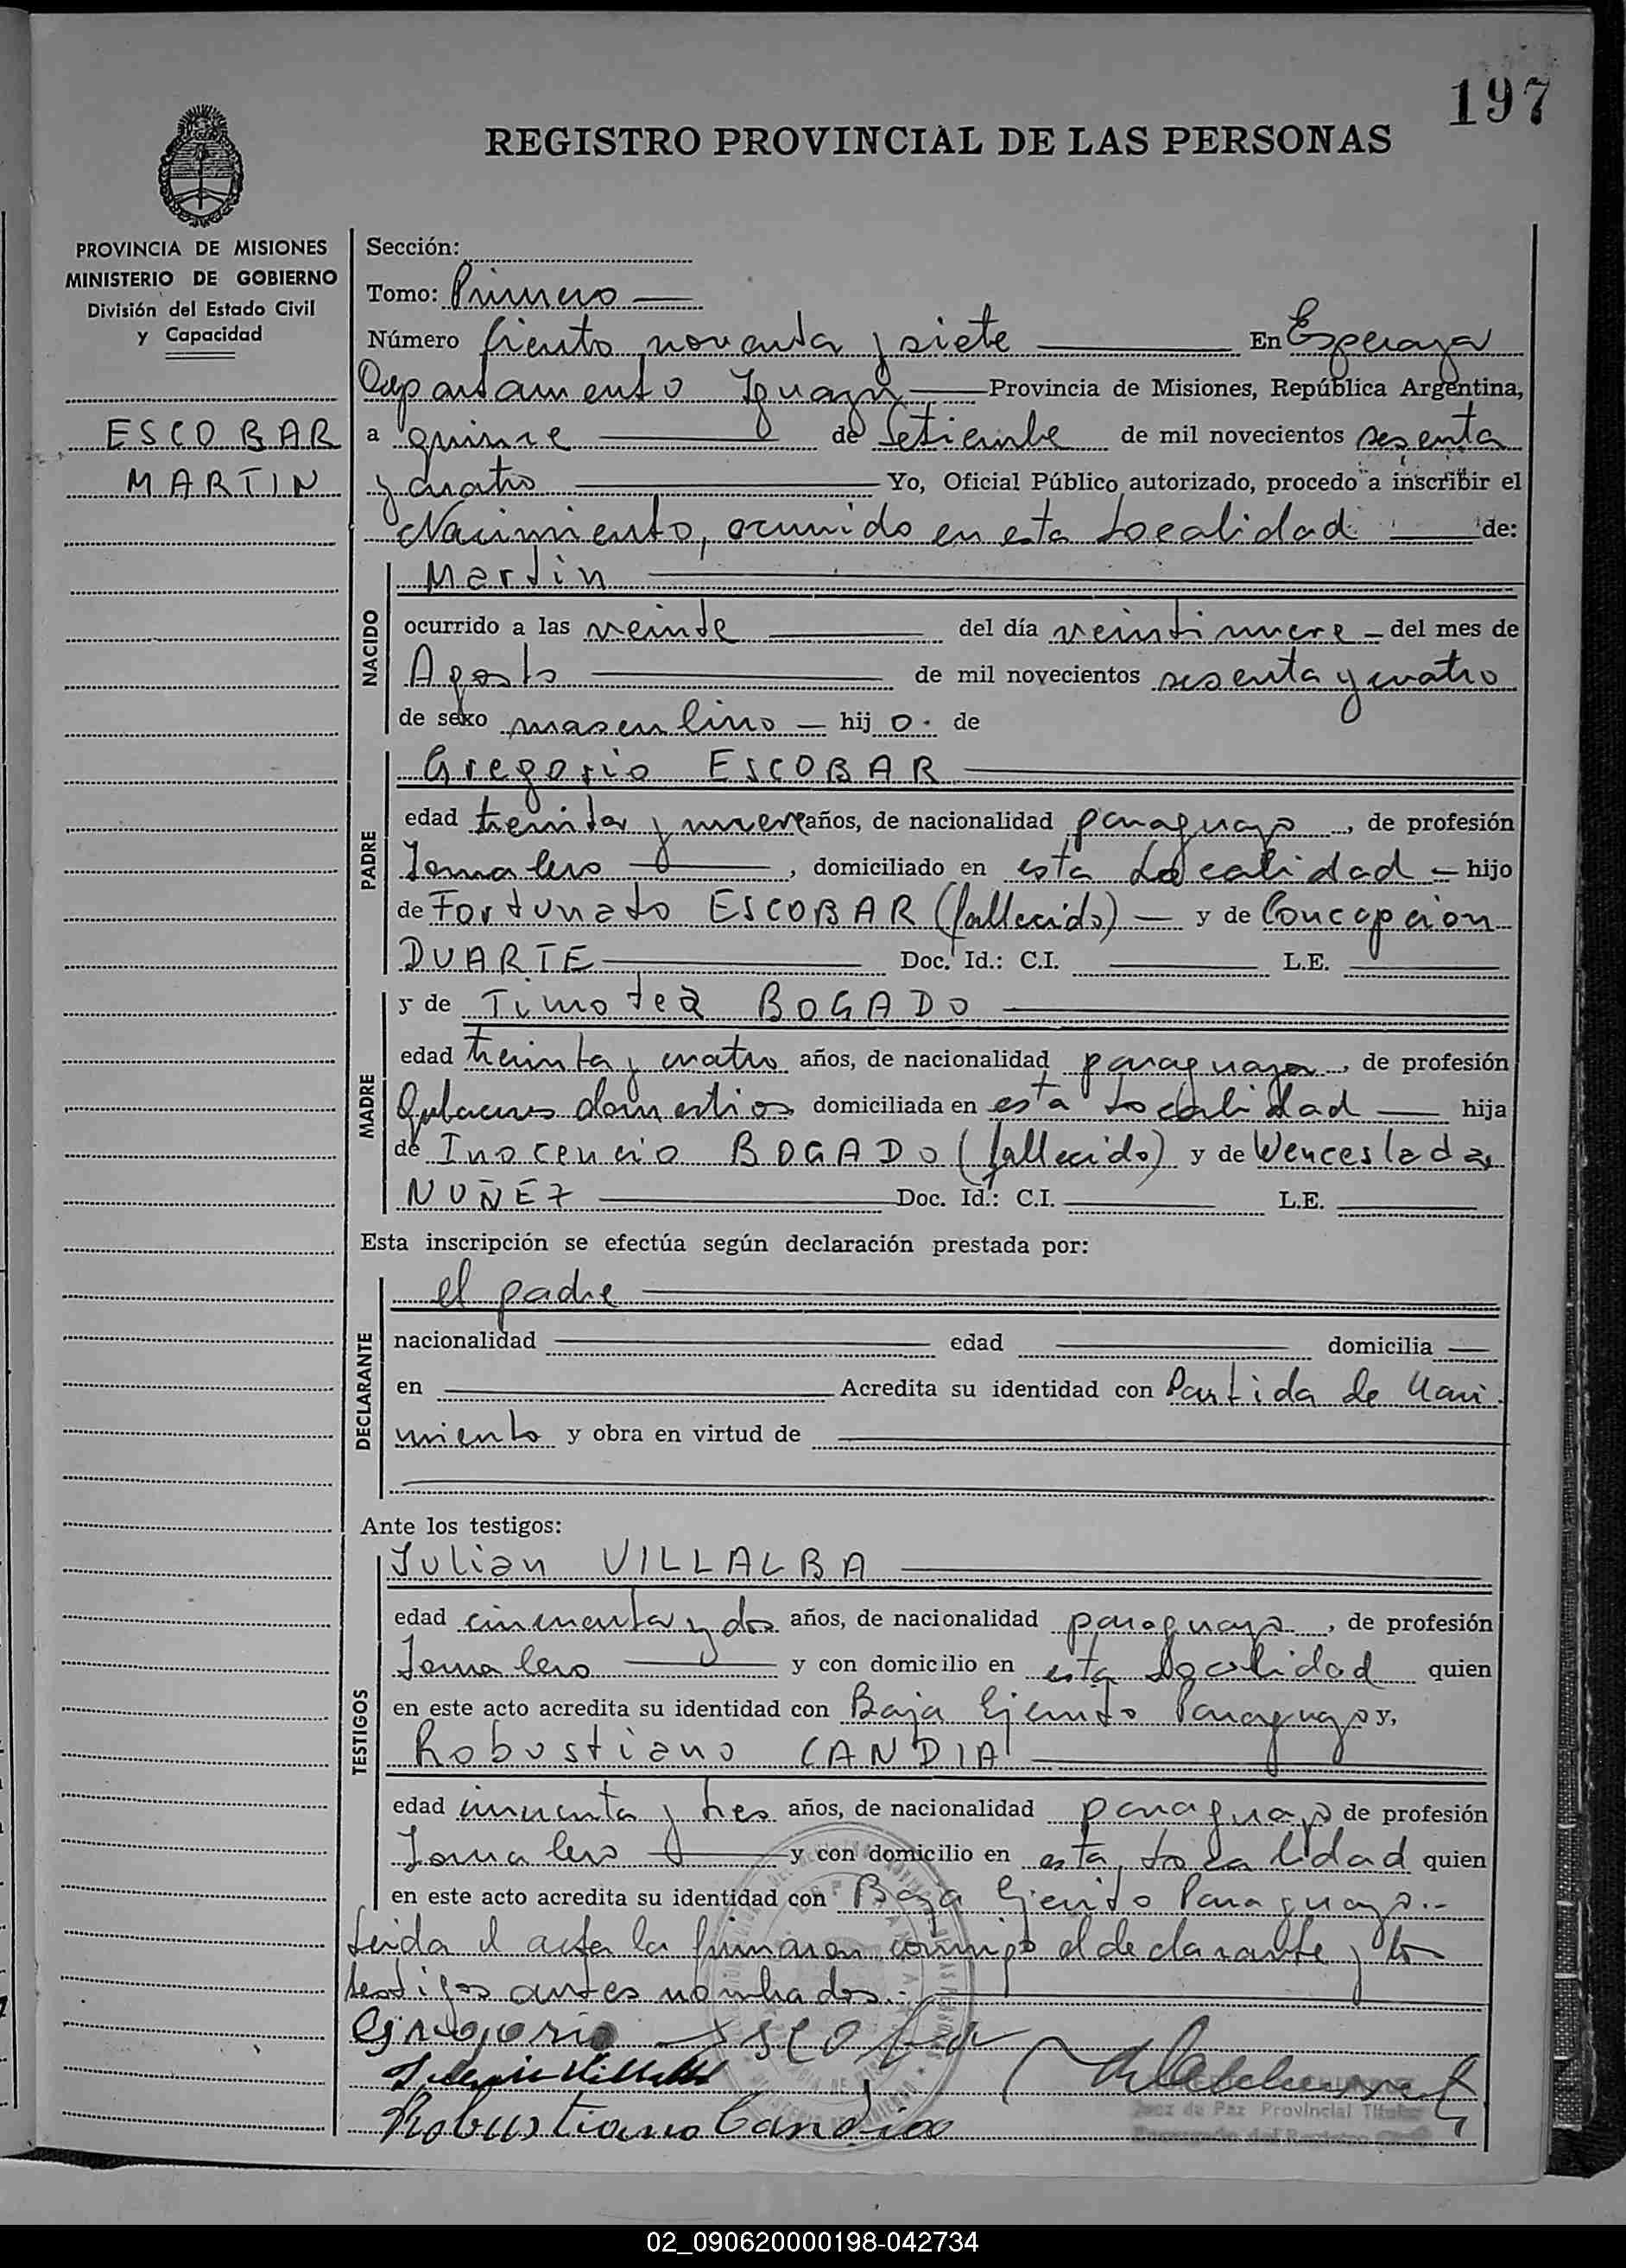 197
REGISTRO PROVINCIAL DE LAS PERSONAS
PROVINCIA DE MISIONES
MINISTERIO DE GOBIERNO
División del Estado Civil
y Capacidad
ESCOBAR
MARTIN
Sección:
Tomo: Primero
Número Ciento noventa y siete En Esperaza
Departamento Iguazú Provincia de Misiones, República Argentina,
a quince de Setiembre de mil novecientos sesenta
y cuatro Yo, Oficial Público autorizado, procedo a inscribir el
Nacimiento, ocurrido en esta Localidad de:
NACIDO
Martin
ocurrido a las veinte del día veintinueve del mes de
Agosto de mil novecientos sesenta y cuatro
de sexo masculino hijo. de
PADRE
Gregorio ESCOBAR
edad treinta y nueve años, de nacionalidad paraguayo, de profesión
Jornalero, domiciliado en esta Localidad hijo
de Fortunato ESCOBAR (fallecido) y de Concepcion
DUARTE Doc. Id.: C.I. L.E.
MADRE
y de Timotea BOGADO
edad treinta y cuatro años, de nacionalidad paraguaya, de profesión
Quehaceres domesticos domiciliada en esta Localidad hija
de Inocencio BOGADO (fallecido) y de Wenceslada
NUÑEZ Doc. Id.: C.I. L.E.
Esta inscripción se efectúa según declaración prestada por:
DECLARANTE
el padre
nacionalidad edad domicilia
en Acredita su identidad con Partida de Naci
miento y obra en virtud de
Ante los testigos:
TESTIGOS
Julian VILLALBA
edad cincuenta y dos años, de nacionalidad paraguaya, de profesión
Jornalero y con domicilio en esta Localidad quien
en este acto acredita su identidad con Baja Ejercito Paraguayo y,
Robustiano CANDIA
edad cincuenta y tres años, de nacionalidad paraguayo de profesión
Jornalero y con domicilio en esta Localidad quien
en este acto acredita su identidad con Baja Ejercito Paraguayo.-
Leida el acta la firmaron conmigo el declarante y los
testigos antes nombrados.-
Gregorio Escobar
Julian Villalba
Robustiano Candia
Juez de Paz Provincial Titular
Encargado del Registro Civil
02_090620000198-042734